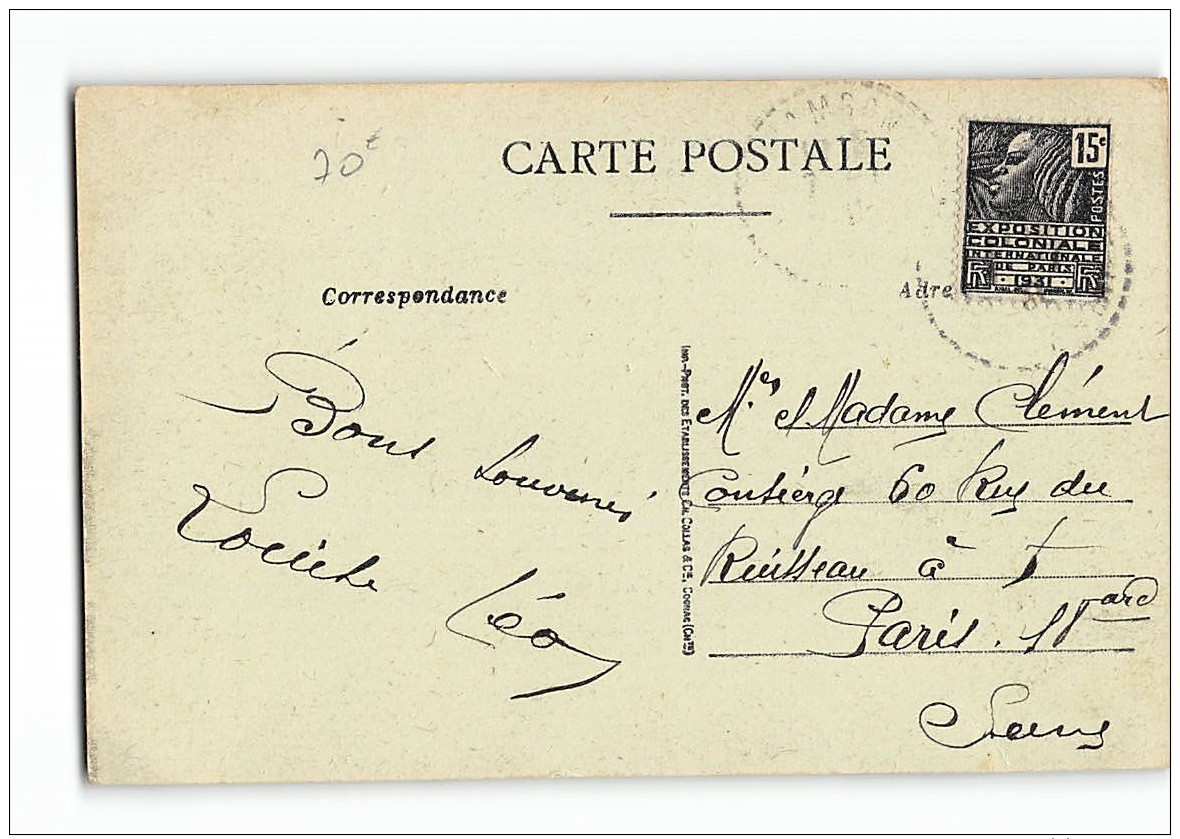 70€
CARTE POSTALE
15c
POSTES
EXPOSITION
COLONIALE
INTERNATIONALE
DE PARIS
RF 1931 RF
Correspondance
Adre
Bons Souvenirs
Léo
IMP.-PHOT. DES ETABLISSEMENTS CH. COLLAS & Cie, COGNAC (Chte)
Mr et Madame Clément
Consièrge 60 Rue du
Ruisseau à
Paris. 18 ard
Seine